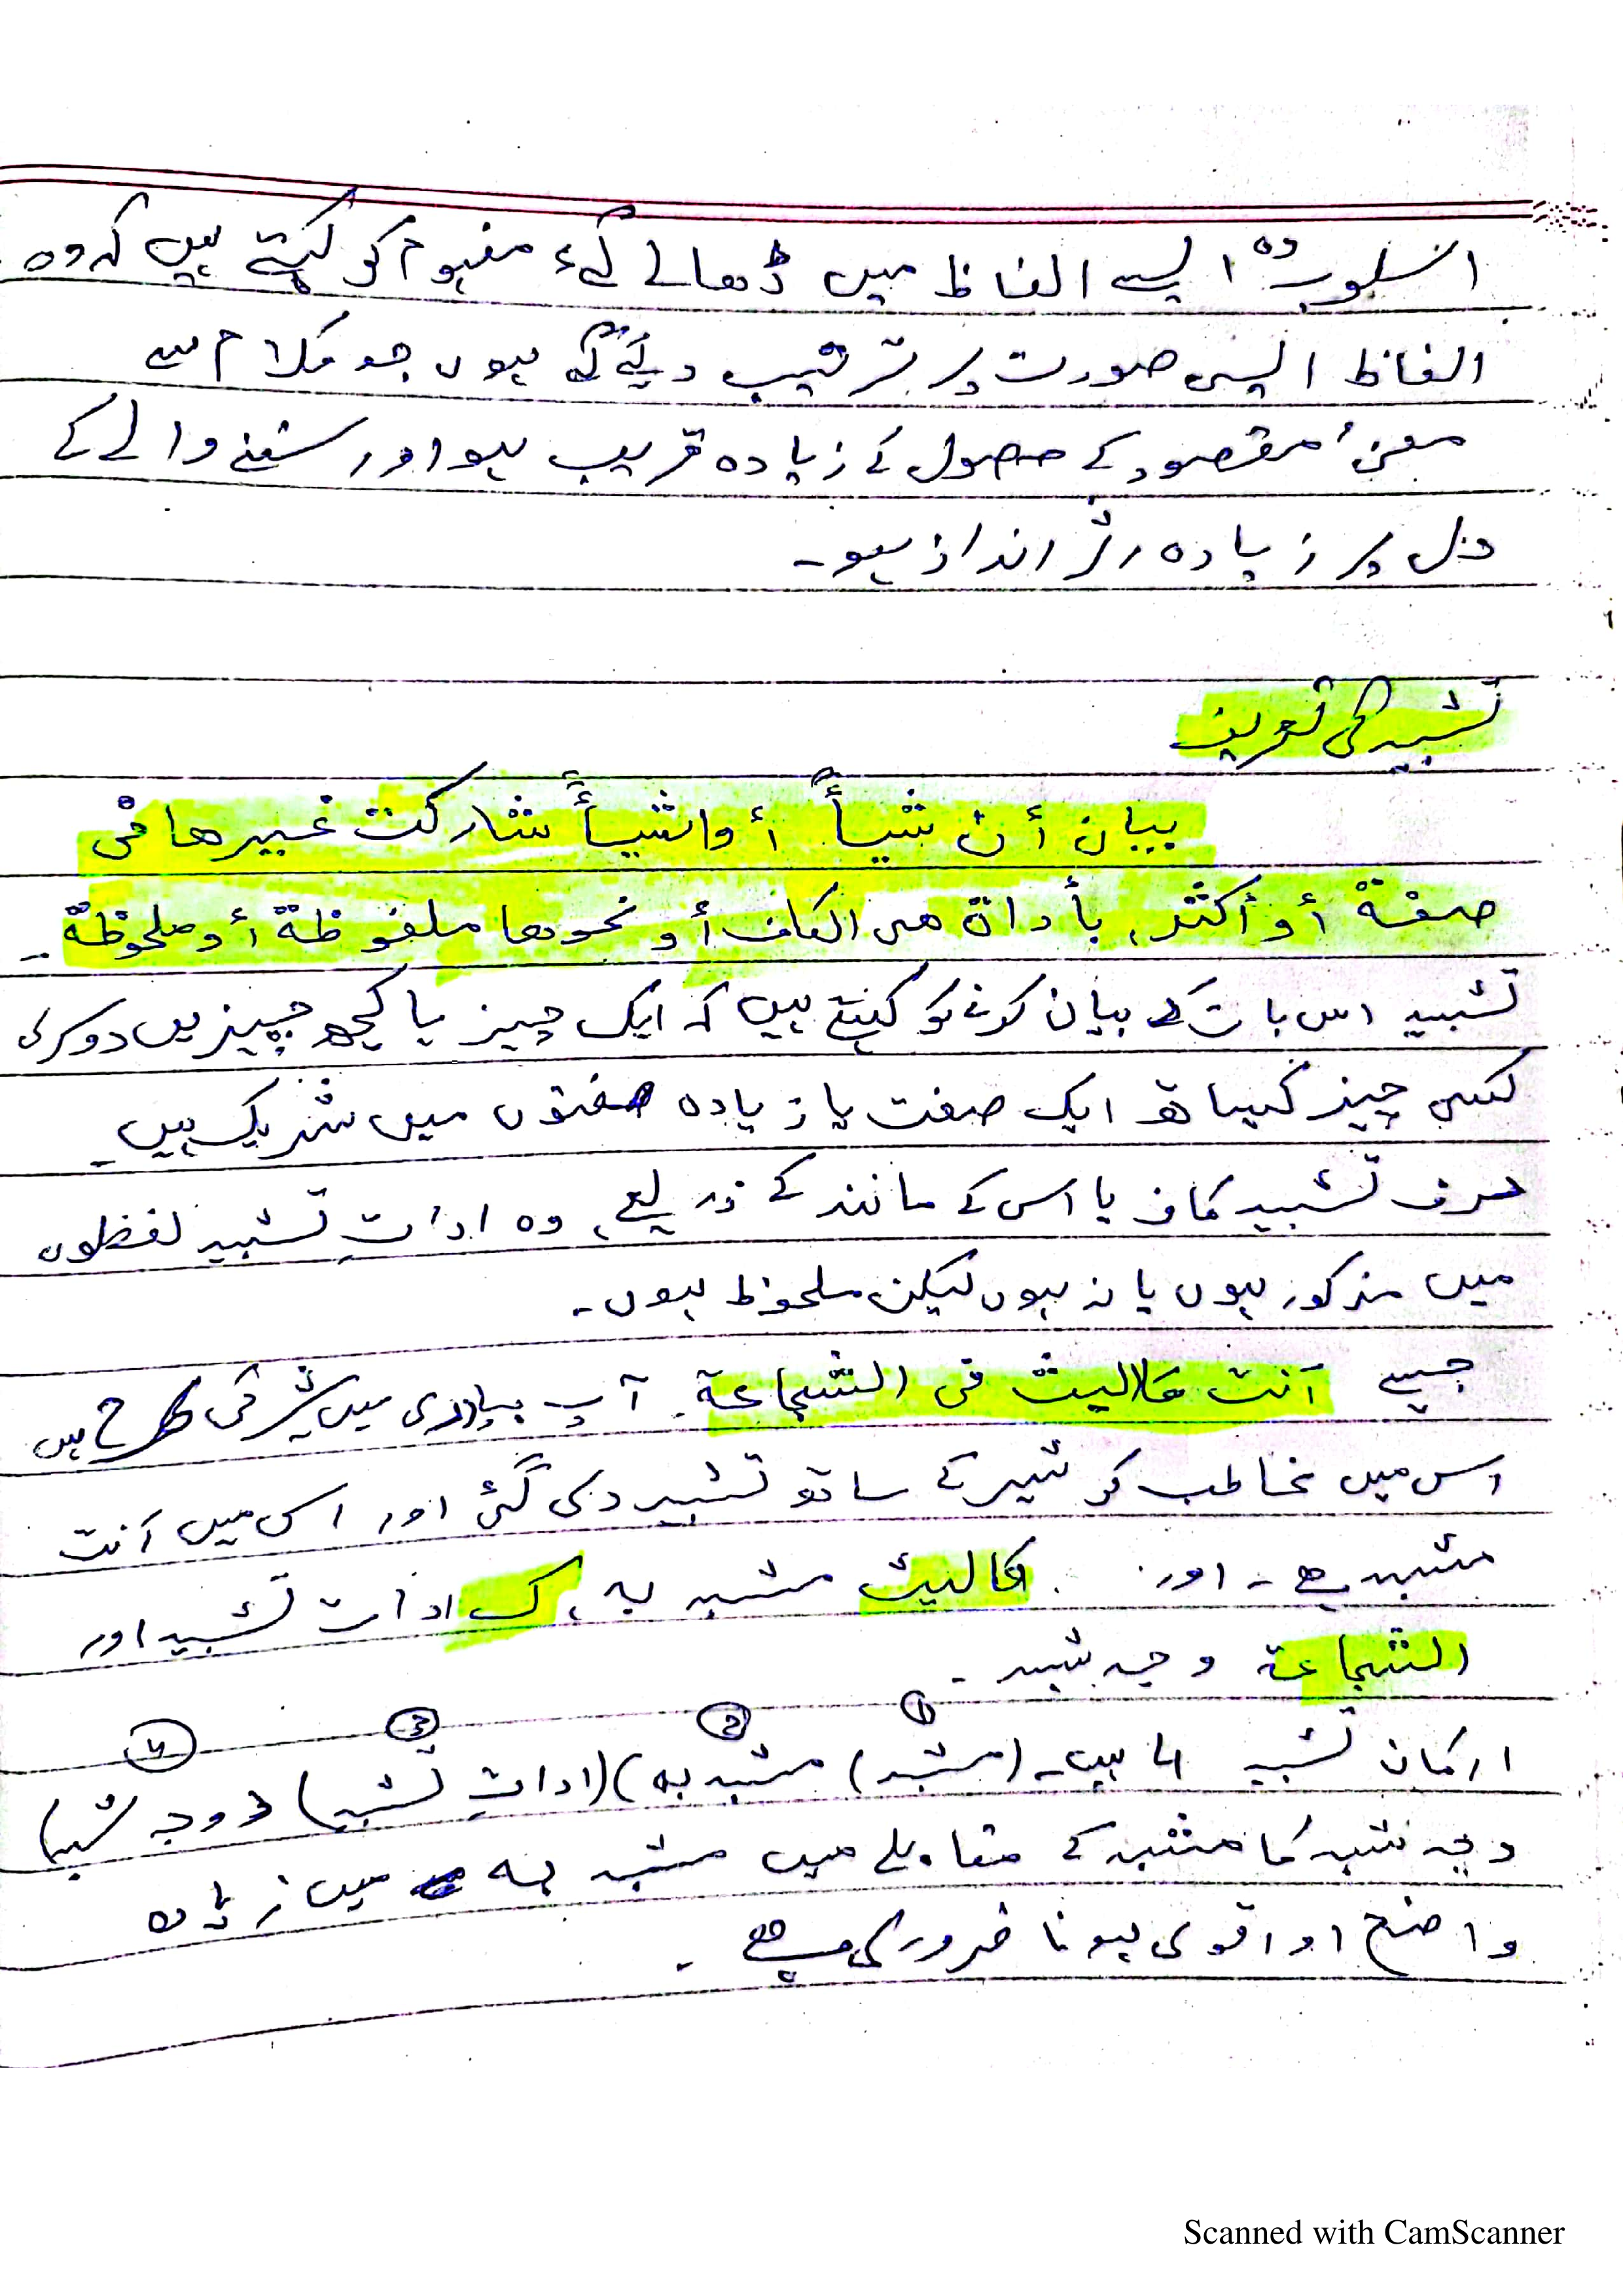 اسلوب وہ ایسے الفاظ میں ڈھالے گئے مفہوم کو کہتے ہیں کہ وہ
الفاظ ایسی صورت پر ترتیب دیئے گئے ہوں جو کلام سے
معنیٰ مقصود کے حصول کے زیادہ قریب ہو اور سننے والے کے
دل پر زیادہ اثر انداز ہو۔
تشبیہ کی تعریف
بیان أن شیأً أو اشیأً شارکت غیرھا فی
صفۃ أو أکثر، بأداۃ ھی الکاف أو نحوھا ملفوظۃ أو ملحوظۃ۔
تشبیہ اس بات کے بیان کرنے کو کہتے ہیں کہ ایک چیز یا کچھ چیزیں دوسری
کسی چیز کیساتھ ایک صفت یا زیادہ صفتوں میں شریک ہیں۔
حرف تشبیہ کاف یا اس کے مانند کے ذریعے، وہ اداتِ تشبیہ لفظوں
میں مذکور ہوں یا نہ ہوں لیکن ملحوظ ہوں۔
جیسے أنت کاللیث فی الشجاعۃ۔ آپ بہادری میں شیر کی طرح ہیں
اس میں مخاطب کو شیر کے ساتھ تشبیہ دی گئی اور اس میں أنت
مشبہ ہے۔ اور کالیث مشبہ بہ، ک ادات تشبیہ اور
الشجاعۃ وجہ شبہ۔
① ② ③ ④
ارکان تشبیہ 4 ہیں۔ (مشبہ) مشبہ بہ) (اداتِ تشبیہ) (وجہ شبہ)
وجہ شبہ کا مشبہ کے مقابلے میں مشبہ بہ میں زیادہ
واضح او اقوی ہونا ضروری ہے۔
Scanned with CamScanner